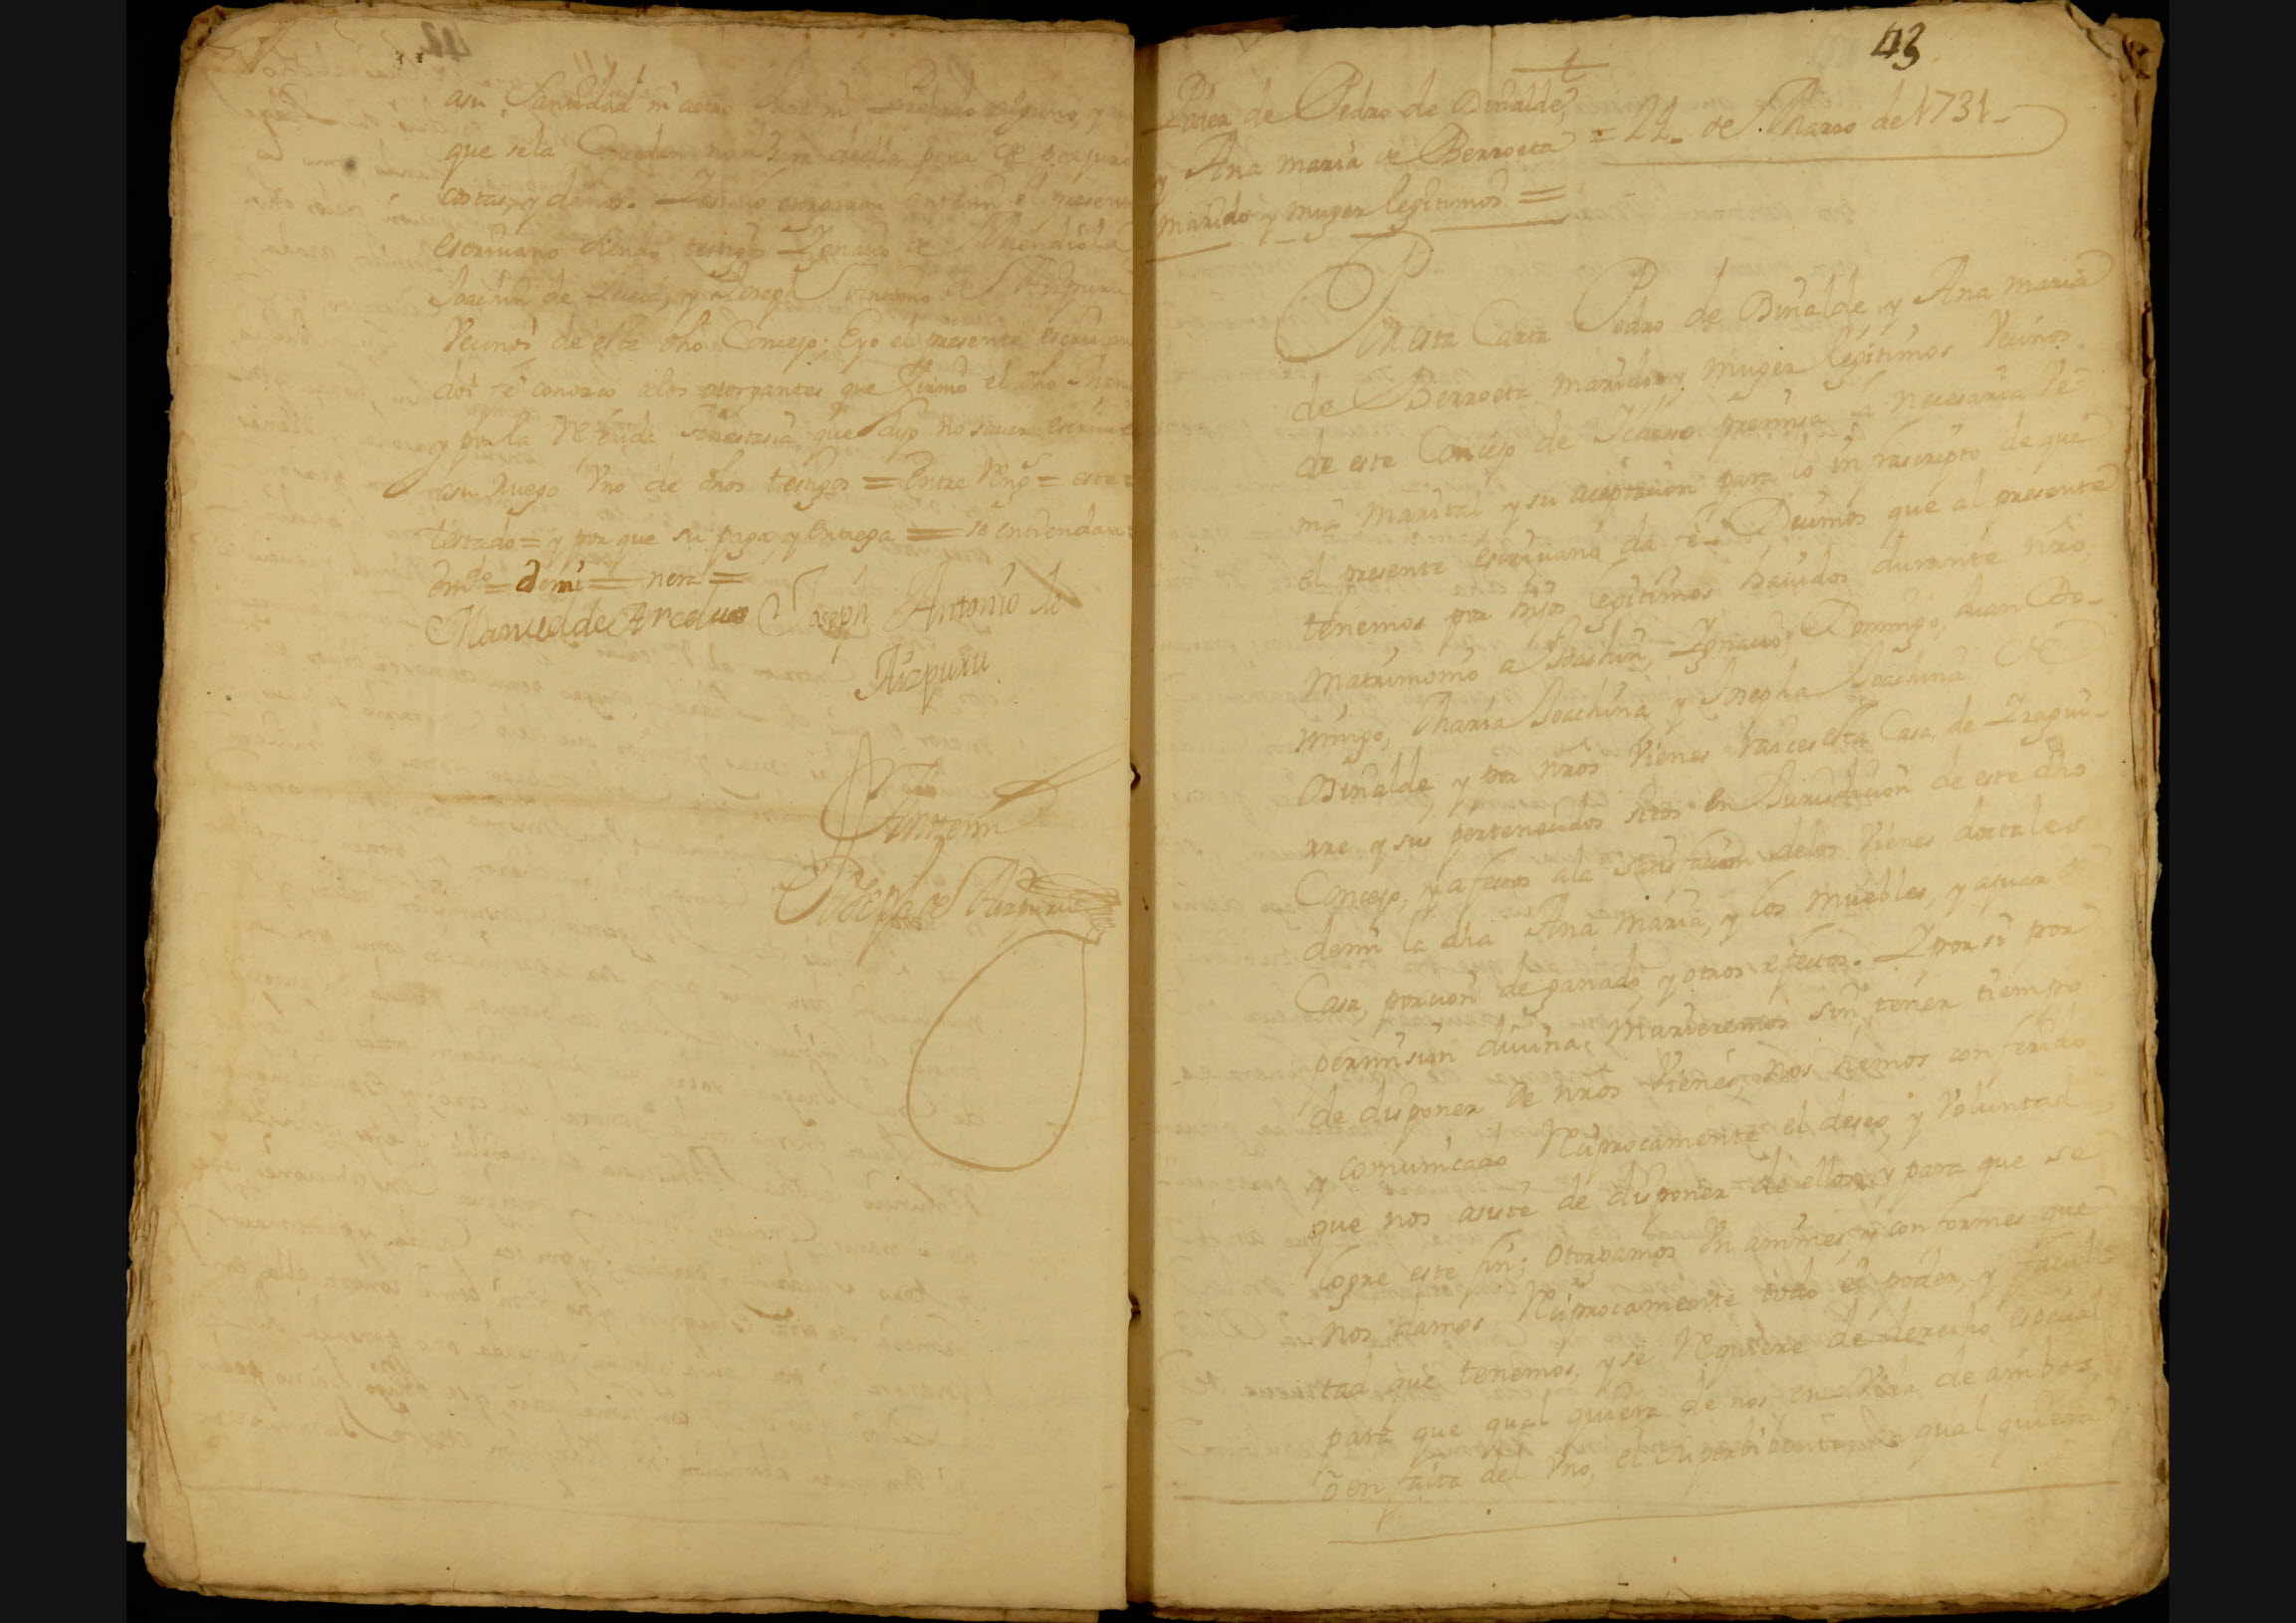 asu Santidad ni aotro Juez ni Prelado alguno, y
que sela Conceda no Usara della pena de perjura
costas, y daños. Y assi lo otorgaron ante mi el presente
escriuano siendo testigos Ygnacio de Mendiola
Joachin de y Joseph Antonio de Aizpuru
Vecinos de este dho Concejo. Eyo el presente escriuano
doi fe conozco alos otorgantes que firmó el dho Man
y por la Referida que dijo no sauer escriuir
asu Ruego Vno de dhos testigos = Entre Rengs = este =
testado = y por que su paga, y entrega = se entiendan =
emdo = demi = nera =
Manuel de Arcelus Joseph Antonio de
Aizpuru
Ante mi
Joseph de Aizpuru
43
Poder de Pedro de Oiñalde,
y Ana maria de Berroeta = 21 de Marzo de 1731
marido y muger legitimos =
En esta Carta Pedro de Oiñalde, y Ana maria
de Berroeta marido y muger legitimos Vecinos
de este Concejo de Ichaso premisa la necesaria Ve-
nia marital y su aceptacion para lo infrascripto de que
el presente escriuano da fe. Decimos que al presente
tenemos por hijos legitimos hauidos durante nro
matrimonio a Joachin, Ygnacio, Domingo, Juan Do-
mingo, Maria Joachina y Josepha Joachina de
Oiñalde, y por nros Vienes raices esta Casa de Yzagui-
rre y sus pertenecidos sitos en Jurisdicion de este dho
Concejo, y afectos ala satisfacion delos Vienes dotales
demi la dha Ana Maria, y los muebles, y ajuar de
Casa, porcion de ganado, y otros efectos. Y por si por
permision diuina, murieremos sin tener tiempo
de disponer de nros Vienes, nos hemos conferido
y comunicado Reciprocamente el deseo, y Voluntad
que nos asiste de disponer de ellos y para que se
logre este fin; otorgamos Vnanimes, y conformes que
nos damos Reciprocamente todo el poder, y facul-
tad que tenemos, y se Requiere de derecho especial
para que qual quiera de nos en Vida de ambos,
ò en falta del Vno, el Superbibiente a qual quiera